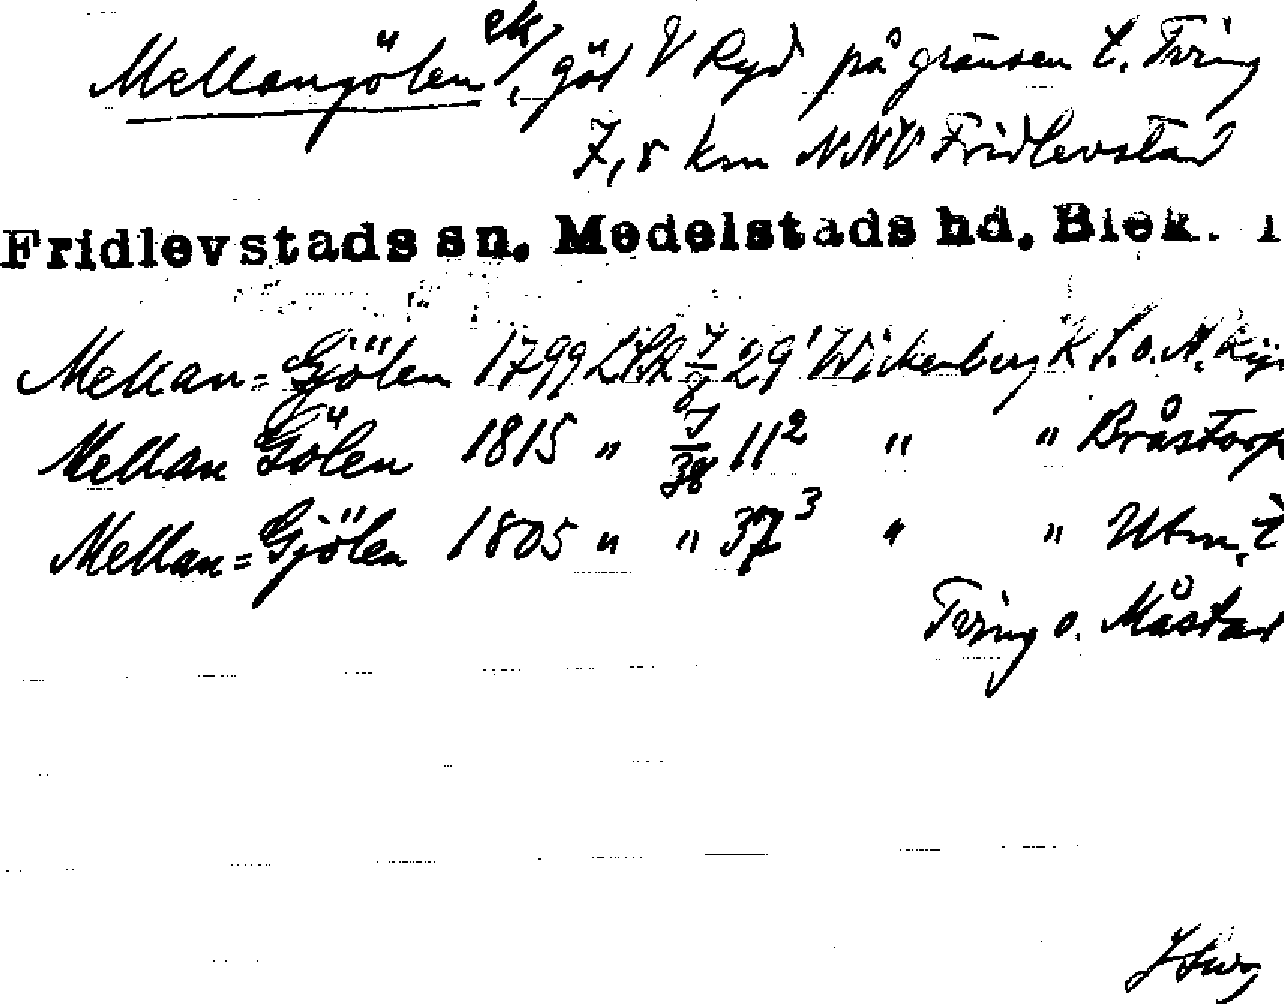 Mellangölen ek, göl V Ryd på gränsen t. Tving
7,5 km NNV Fridlevstad
Fridlevstads sn. Medelstads hd. Blek. l
Mellan=Gjölen 1799 LSA 7/9 29' Wickenberg K S. o. N. Ryd
Mellan Gölen 1815 „ 7/38 11² „ „ Bråstorp
Mellan=Gjölen 1805 „ „ 37³ „ „ Utm. t
Tving o. Måstad